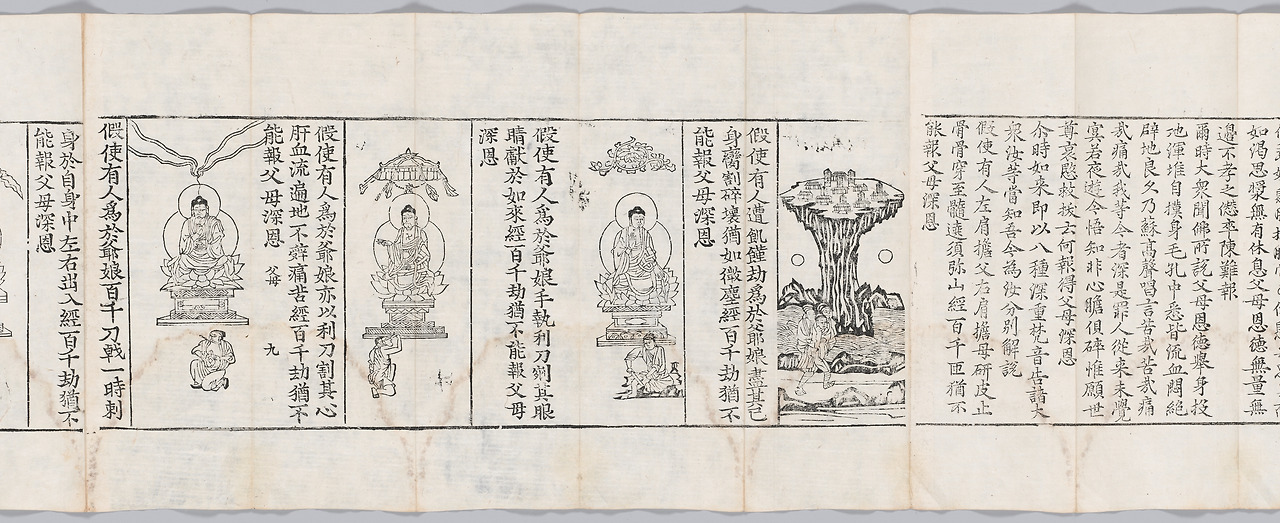 如渴思漿無有休息父母恩德無量無
邊不孝之愆卒陳難報
爾時大衆聞佛所說父母恩德舉身投
地渾堆自撲身毛孔中悉皆流血悶絶
辟地良久乃蘇高聲唱言苦哉苦哉痛
哉痛哉我等今者深是罪人從来未覺
冥若夜遊今悟知非心膽俱碎惟願世
尊哀愍救拔云何報得父母深恩
尒時如来即以八種深重梵音告諸大
衆汝等當知吾今為汝分別解說
假使有人左肩擔父右肩擔母研皮止
骨骨穿至髓遶須弥山經百千匝猶不
能報父母深恩
假使有人遭飢饉劫爲於爺娘盡其己
身臠割碎壞猶如微塵經百千劫猶不
能報父母深恩
假使有人爲於爺娘手執利刀剜其眼
睛獻於如來經百千劫猶不能報父母
深恩
假使有人爲於爺娘亦以利刀割其心
肝血流遍地不辤痛苦經百千劫猶不
能報父母深恩
父母 九
假使有人爲於爺娘百千刀戟一時刺
身於自身中左右出入經百千劫猶不
能報父母深恩